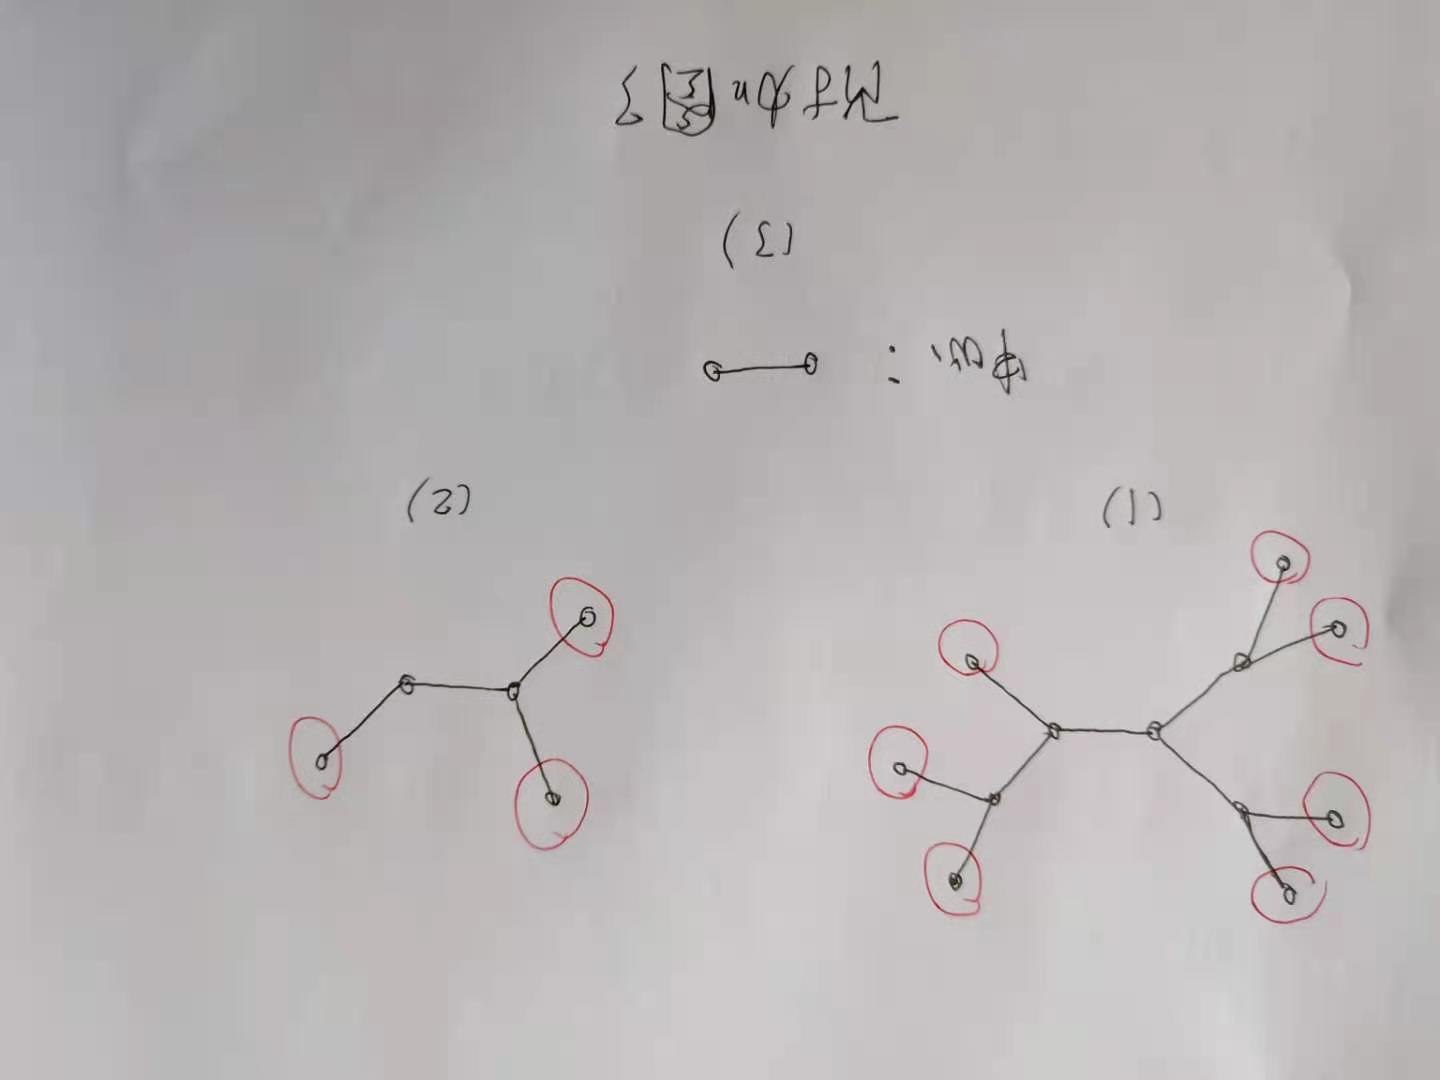 (1)
(2)
中心:
(3)
附加图3